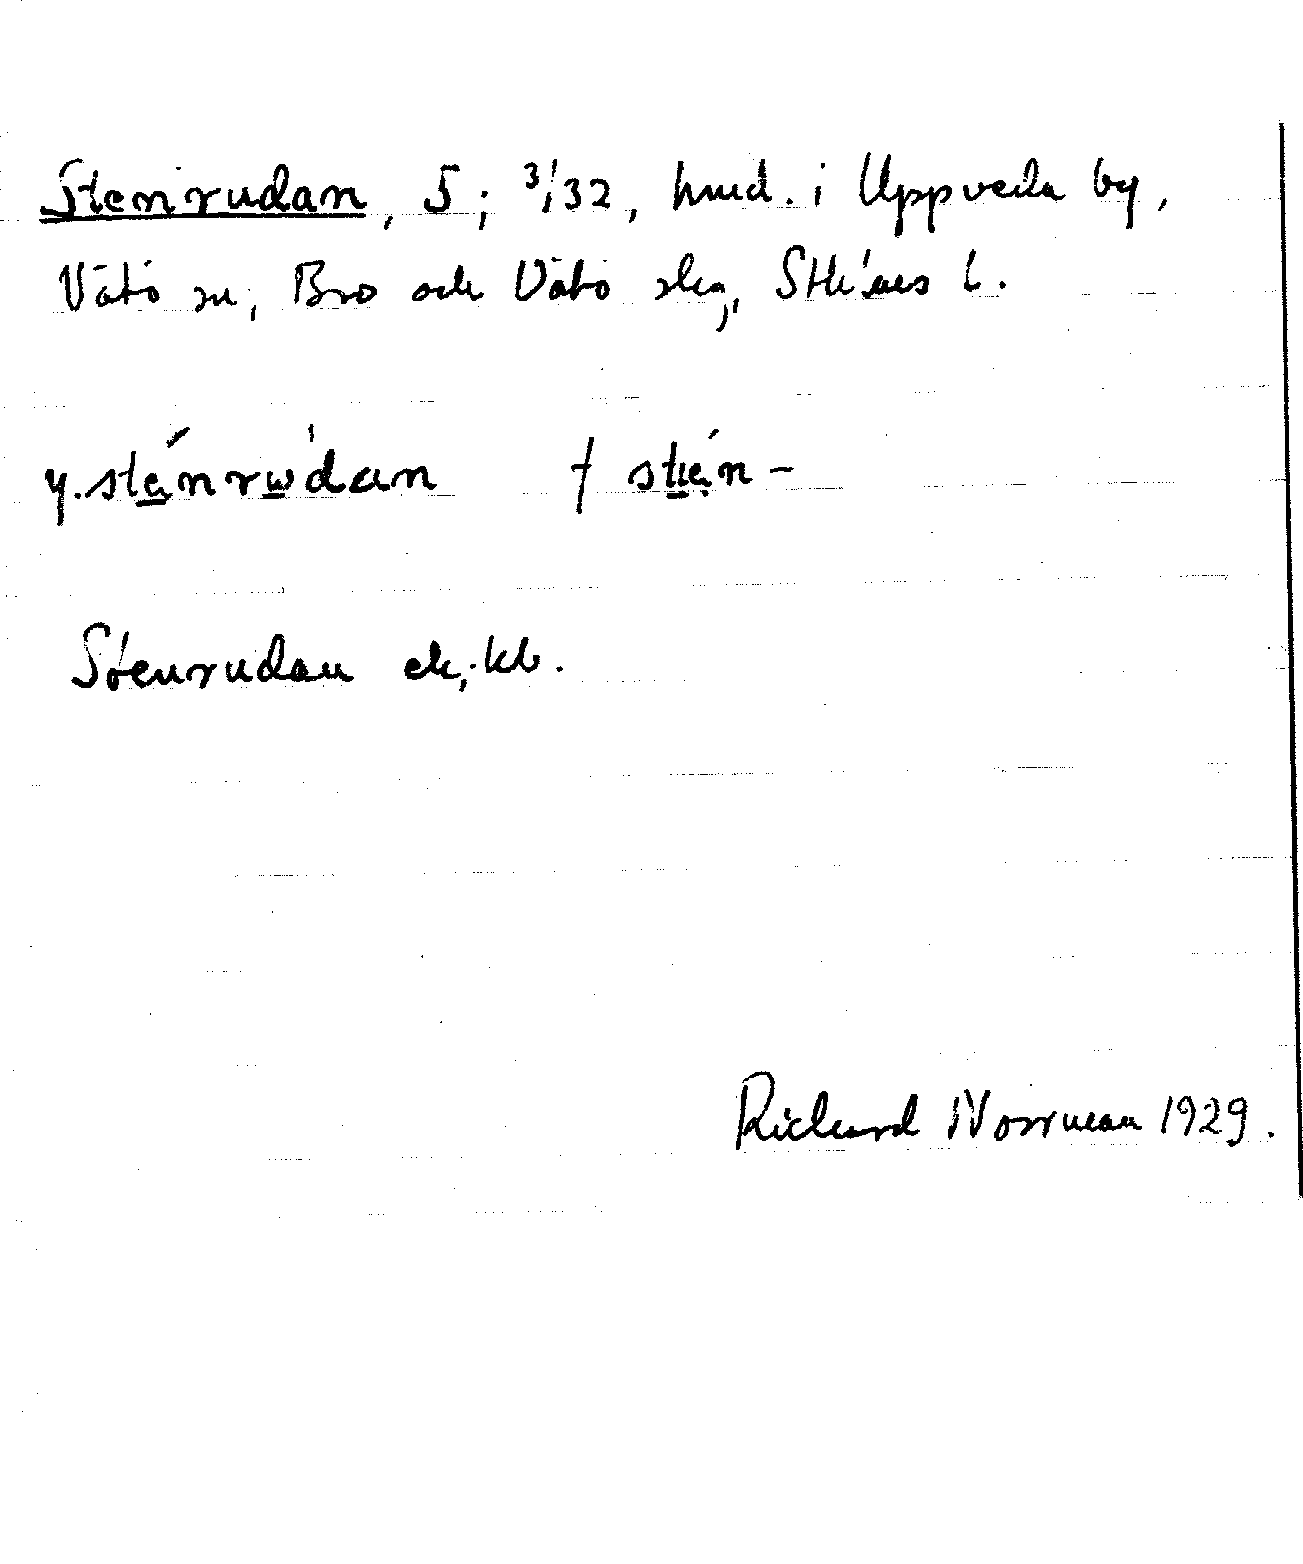 Stenrudan, 5; 3/32, hmd. i Uppveda by,
Vätö sn, Bro och Vätö slg, Sthlms l.
y. sténrùdan † stıén-
Stenrudan ek, kb.
Richard Norrman 1929.